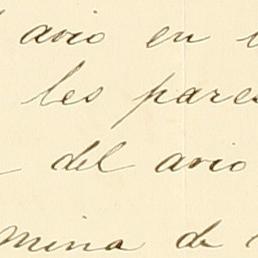 avio en
les pares
del avio
mina de